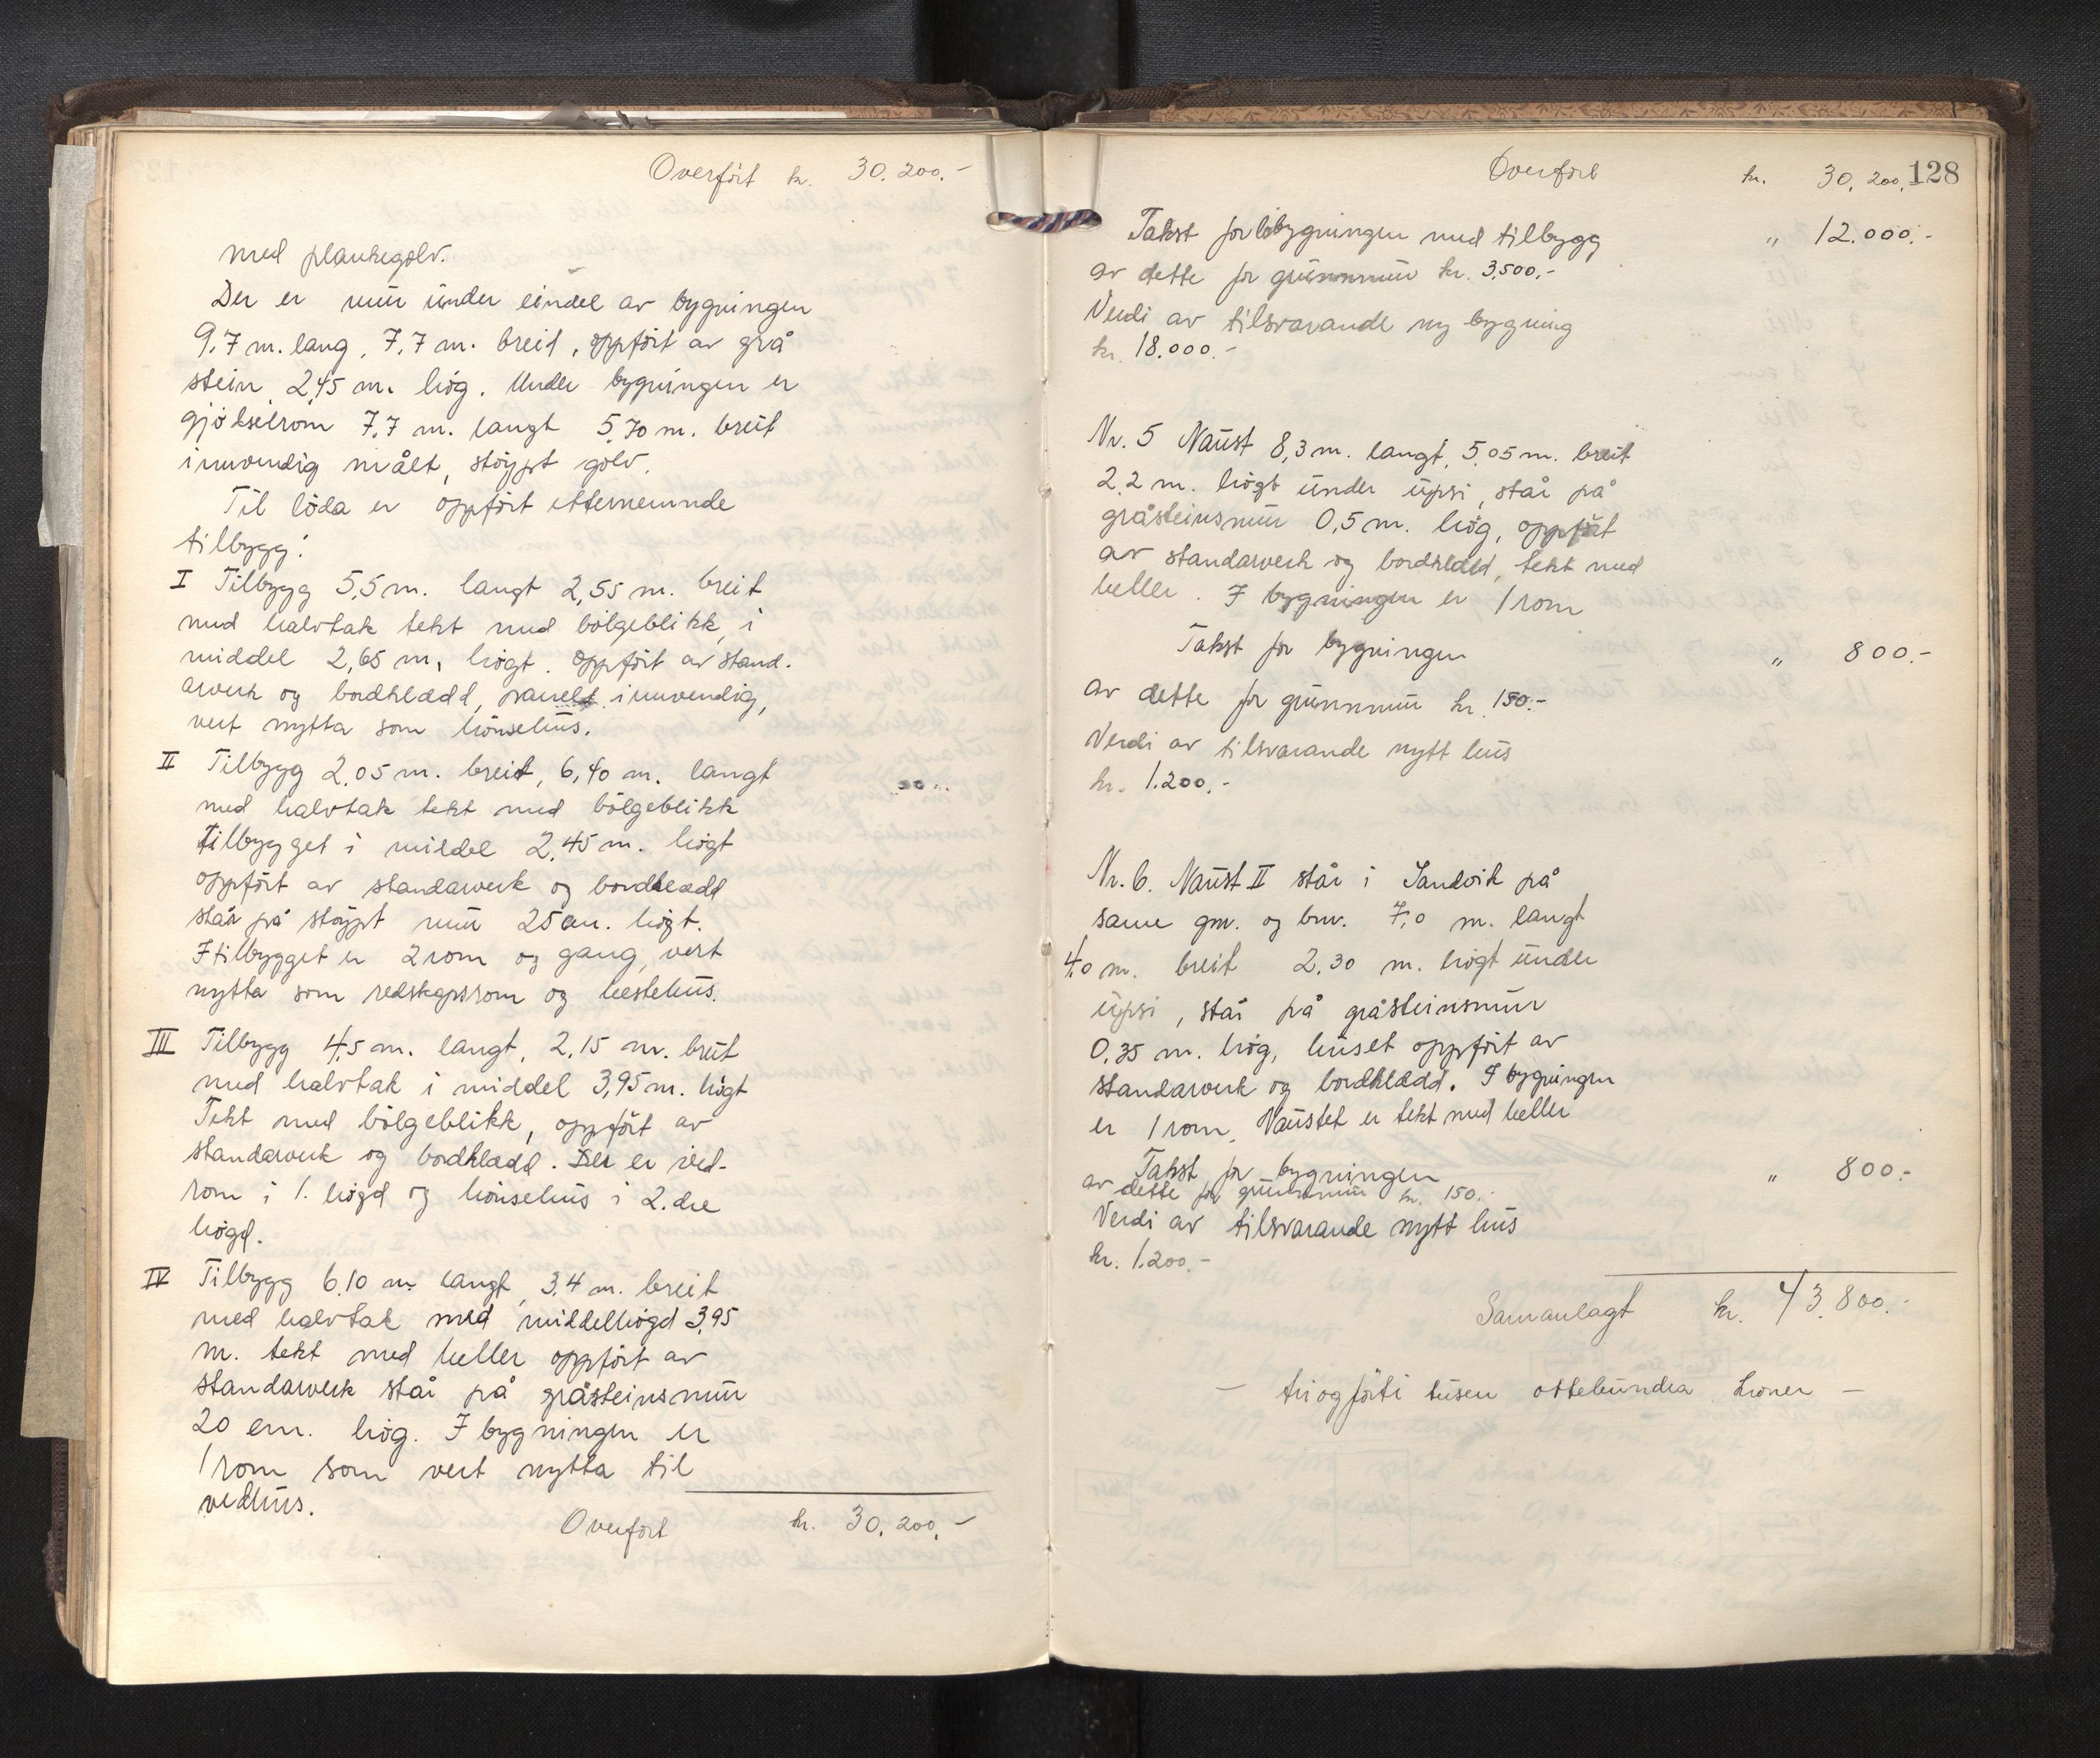 Overført kr. 30.200.-
med plankegolv.
Der er mur under eindel av bygningen
9,7 m. lang, 7,7 m. breid, oppført av grå
stein 2,45 m. høg. Under bygningen er
gjødselrom 7,7 m. langt 5,70 m. breit
innvendig målt, støypt golv.
Til løda er oppført etternemnde
tilbygg:
I Tilbygg 5,5 m. langt 2,55 m. breit
med halvtak tekt med bølgeblikk, i
middel 2,65 m. høgt. Oppført av stand-
arverk og bordklædd, panelt innvendig,
vert nytta som hønsehus.
II Tilbygg 2,05 m. breit, 6,40 m. langt
med halvtak tekt med bølgeblikk
Tilbygget i middel 2,45 m. høgt
oppført av standarverk og bordklædd
står på støypt mur 25 cm. høgt.
I tilbygget er 2 rom og gang, vert
nytta som redskapsrom og hestehus.
III Tilbygg 4,5 m. langt, 2,15 m. breit
med halvtak i middel 3,95 m. høgt
Tekt med bølgeblikk, oppført av
standarverk og bordklædd. Der er ved-
rom i 1. høgd og hønsehus i 2.dre
høgd.
IV Tilbygg 6,10 m. langt, 3,4 m. breit
med halvtak med middelhøgd 3,95
m. tekt med heller oppført av
standarverk står på gråsteinsmur
20 cm. høg. I bygningen er
1 rom som vert nytta til
vedhus.
Overført kr. 30.200.-
128
Overført kr. 30.200.
Takst for bygningen med tilbygg " 12.000.-
av dette for grunnmur kr. 3.500.-
Verdi av tilsvarande ny bygning
kr. 18.000.-
Nr. 5 Naust 8,3 m. langt, 5,05 m. breit
2,2 m. høgt under upsi, står på
gråsteinsmur 0,5 m. høg, oppført
av standarverk og bordklædd, tekt med
heller. I bygningen er 1 rom
Takst for bygningen " 800.-
av dette for grunnmur kr. 150.-
Verdi av tilsvarande nytt hus
kr. 1.200.-
Nr. 6. Naust II står i Sandvik på
same gnr. og bnr. 7,0 m. langt
4,0 m. breit 2,30 m. høgt under
upsi, står på gråsteinsmur
0,35 m. høg, huset oppført av
standarverk og bordklædd. I bygningen
er 1 rom. Naustet er tekt med heller
Takst for bygningen " 800.-
av dette for grunnmur kr. 150.-
Verdi av tilsvarande nytt hus
kr. 1.200.-
Samanlagt kr. 43.800.-
- triogførti tusen ottehundra kroner -